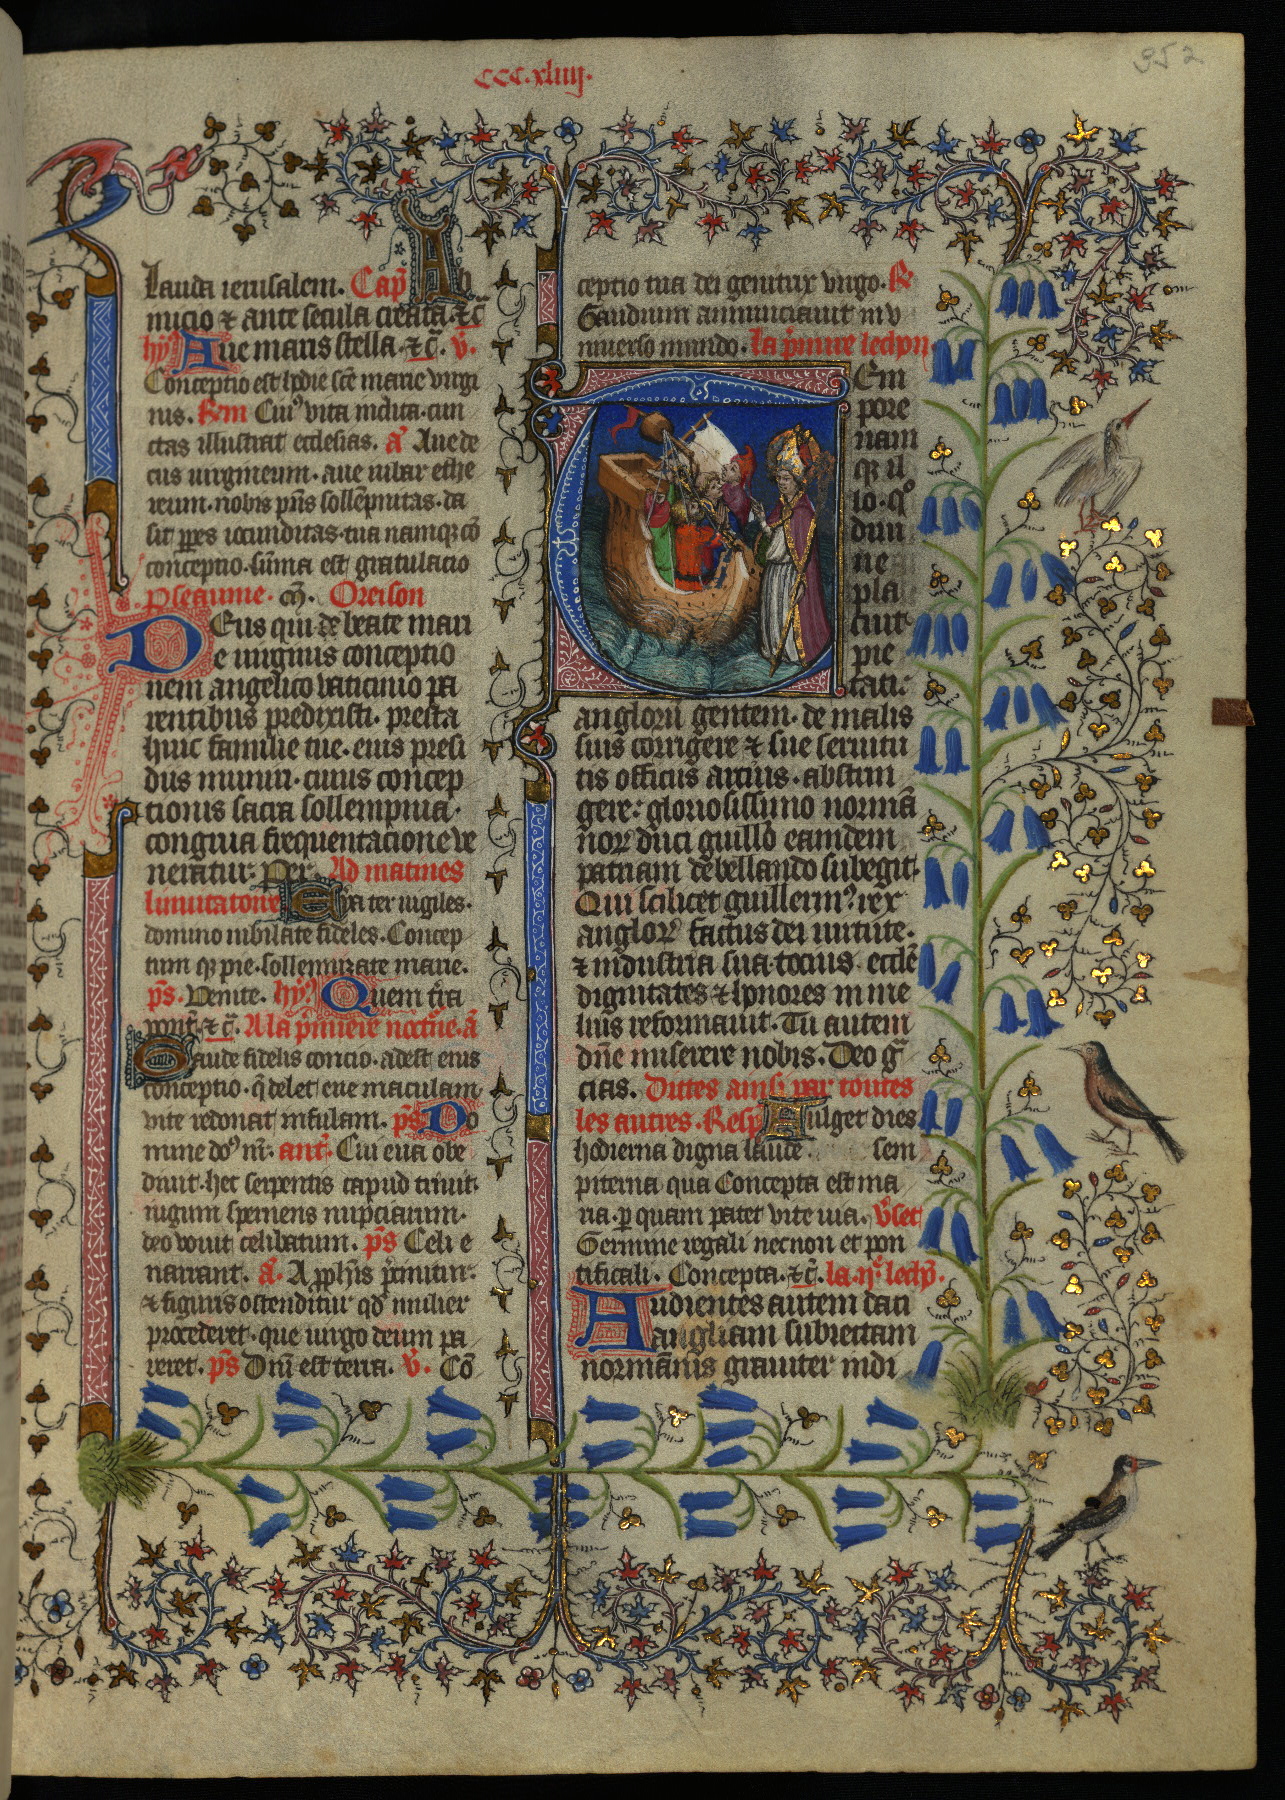 ccc.xliiij.
352
Lauda ierusalem. Cap̃ Ab
inicio ⁊ ante secula creata ⁊c̃
hỹ Aue maris stella ⁊c̃. v̾.
Conceptio est hodie sc̃e marie virgi
nis. Rem Cuiꝰ vita inclita cun
ctas illustrat ecclesias. a᷎ Aue de
cus uirgineum. aue iubar ethe
reum. nobis p̃ns sollẽpnitas. da
sit ꝑpes iocunditas. tua namqꝫ cõ
conceptio. sũma est gratulacio
pseaume. cm̃. Oreison
Deus qui de beate mari
e uirginis conceptio
nem angelico vaticinio pa
rentibus predixisti. presta
huic familie tue. eius presi
diis muniri. cuius concep
tionis sacra sollempnia.
congrua frequentacione ve
neratur. Per. Ad matines
Linuitatoire Eya ter uigiles.
domino iubilate fideles. Concep
tum qꝫ pie. sollemnizate marie.
p̃s. Venite. hỹ. Quem t̃ra
pont̃. ⁊c̃. A la p̃miere noct̃ne. ã
Gaude fidelis concio. adest eius
conceptio. q̃ delet eue maculam.
vite redonat infulam. p̃s Do
mine doꝰ nr̃. ant̃. Cui eua obe
diuit. hec serpentis capud triuit.
iugum spernens nupciarum.
deo vouit celibatum. p̃s Celi e
narrant. a᷎. A ꝓph̃is p̃mitur.
⁊ figuris ostenditur qđ mulier
procederet. que uirgo deum pa
reret. p̃s Dñi est terra. v̾. Cõ
ceptio tua dei genitrix virgo. R̃
Gaudium annunciauit in v
niuerso mundo. la p̃mire lechon
Tem
pore
nam
qꝫ il
lo. qꝰ
diui
ne
pla
cuit
pie
tati:
anglorũ gentem. de malis
suis corrigere ⁊ sue seruitu
tis officiis arcius. abstrin
gere: gloriosissimo normã
noꝝ duci guillo eamdem
patriam debellando subegit.
Qui scilicet guillermꝰ. rex
angloꝝ factus dei uirtute.
⁊ industria sua. tocius ecclẽ
dignitates ⁊ honores in me
lius reformauit. Tu autem
dñe miserere nobis. Deo g̃
cias. Dittes ainsi par toutes
les autres. Resp̃ Fulget dies
hodierna digna laude. sem
piterna qua Concepta est ma
ria. ꝑ quam patet vite uia. v̾set
Germine regali necnon et pon
tificali. Concepta. ⁊c̃. la. ijᵉ. lech̃.
Audientes autem daci
angliam subiectam
normãnis grauiter indi